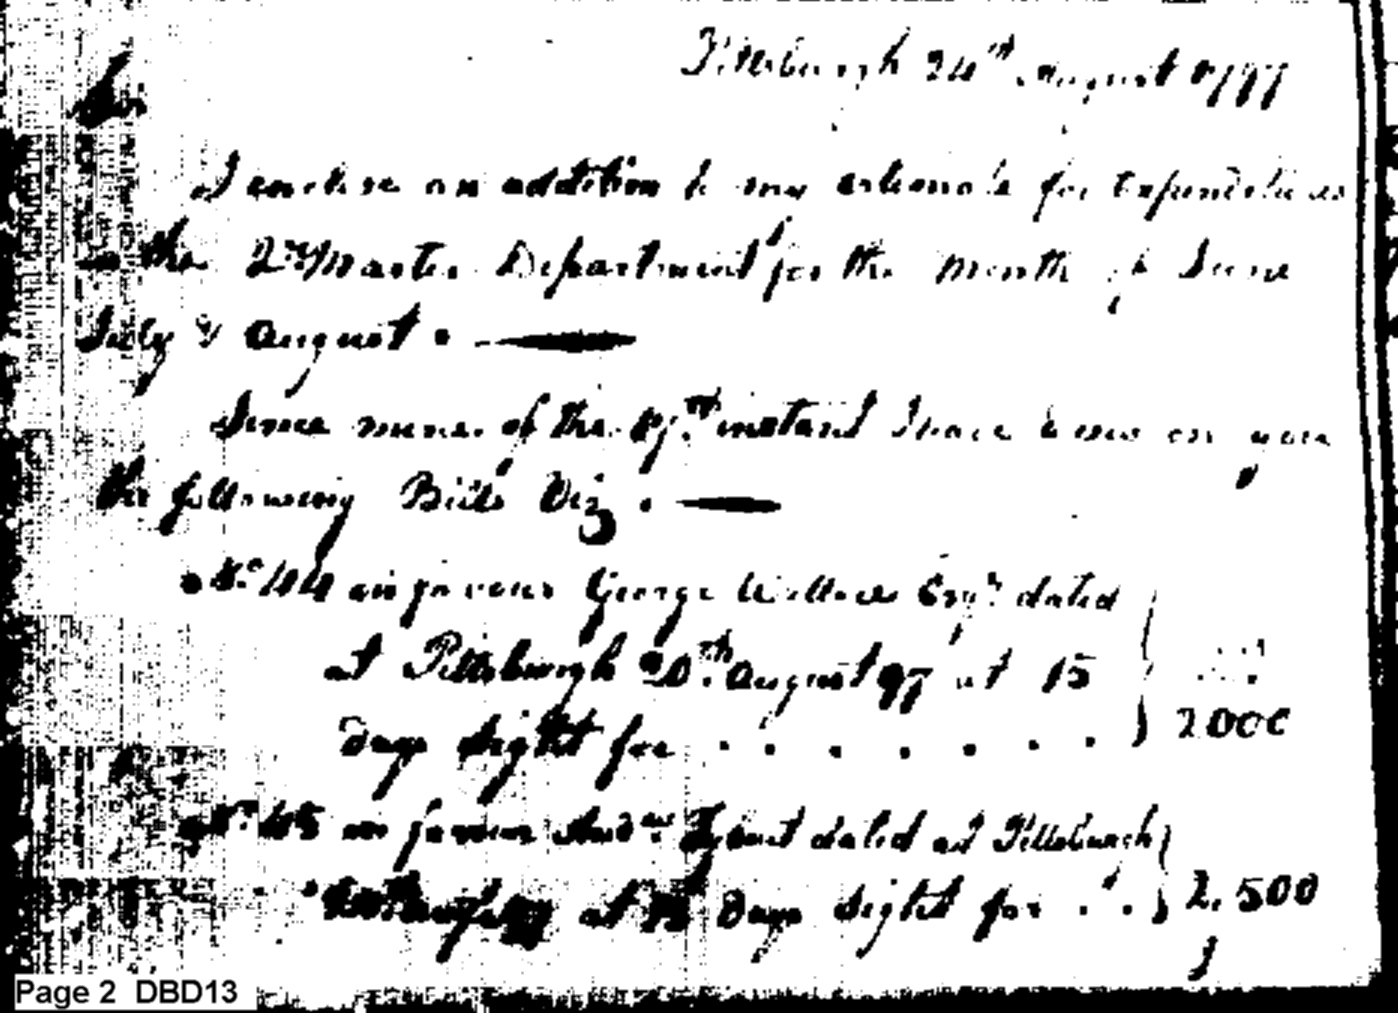 Pittsburgh 24th August 1797
Sir
I enclose an addition to my estimate for Expenditures
in the Qr Master Department for the Month of June
July & August.
Since mine of the 19th instant I have drawn on you
the following Bills Viz.
No. 144 in favour George Wallace Esqr. dated
at Pittsburgh 20th August 97 at 15
days sight for . . . . . . . 2000
No. 145 in favour Andw dated at Pittsburgh
at 15 days sight for . . 2,500
Page 2 DBD13